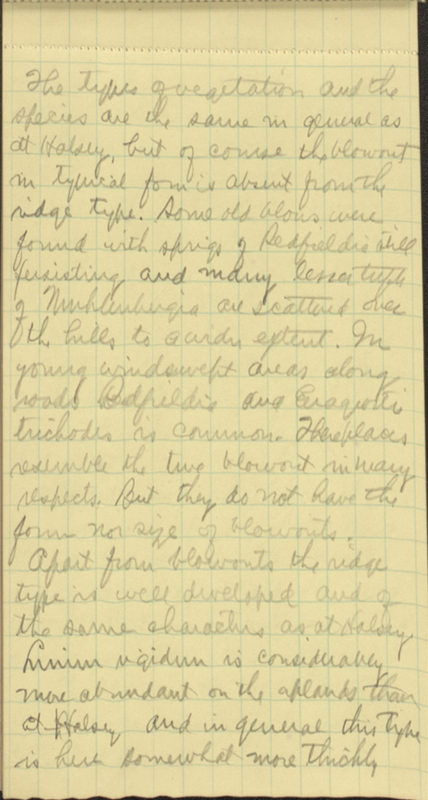 The types of vegetation and the
species are the same in general as
at Halsey, but of course the blowout
in typical form is absent from the
ridge type. Some old blows were
found with sprigs of Redfieldia still
persisting and many lesser tufts
of Muhlenbergia are scattered over
the hills to a wider extent. In
young windswept areas along
roads Redfieldia and Eragrostis
trichodes is common. These places
resemble the true blowout in many
respects. But they do not have the
form nor size of blowouts.
Apart from blowouts the ridge
type is well developed and of
the same characters as at Halsey.
Linum rigidum is considerably
more abundant on the uplands than
at Halsey and in general this type
is here somewhat more thickly